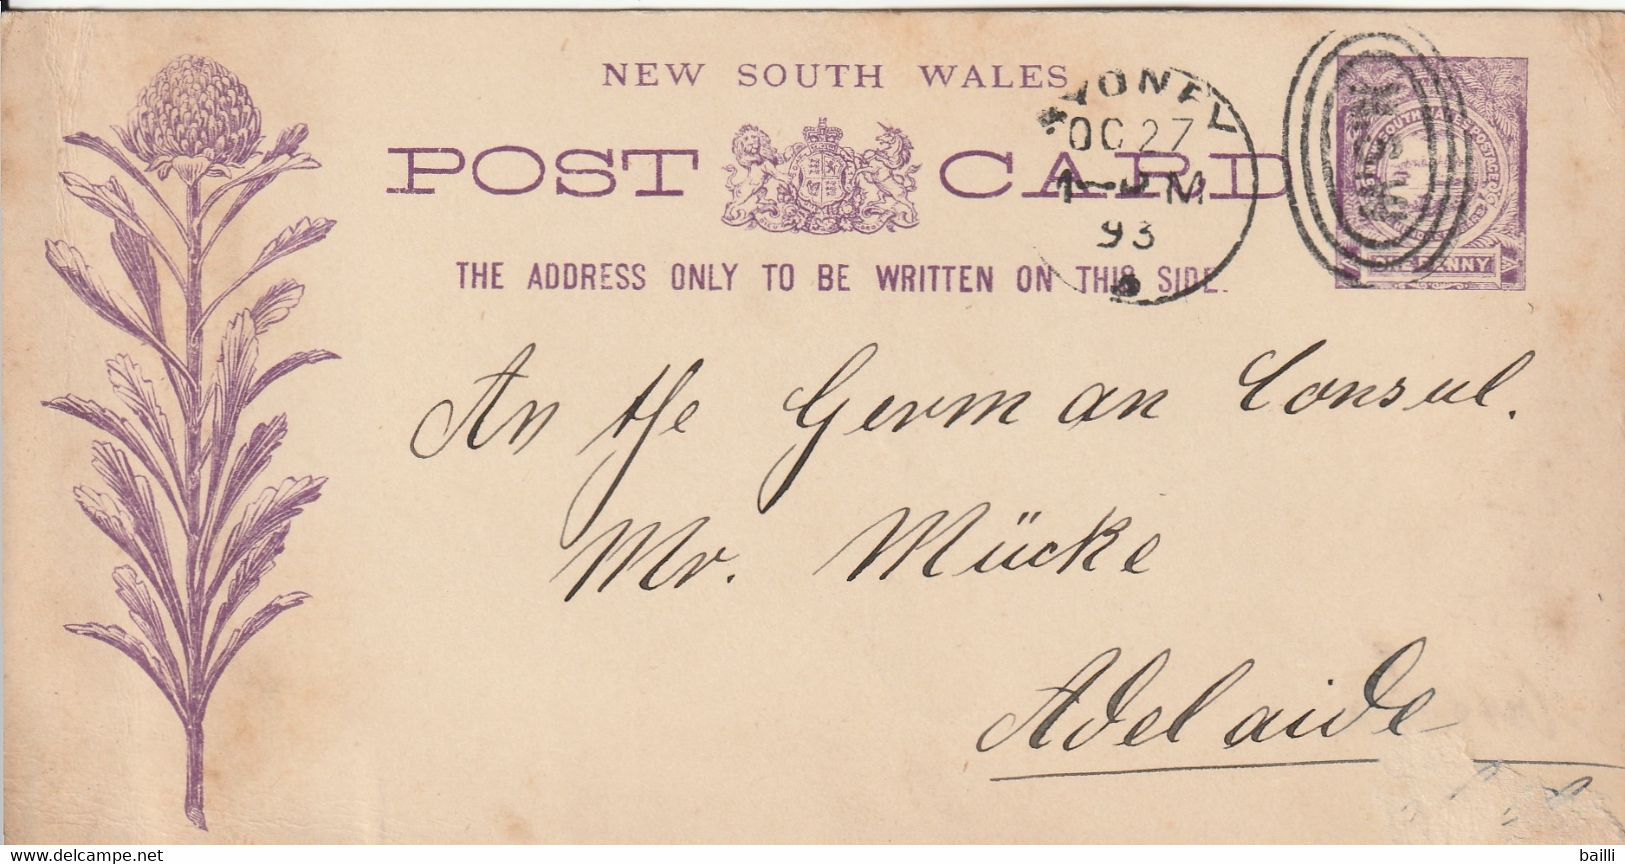 NEW SOUTH WALES
POST CARD
THE ADDRESS ONLY TO BE WRITTEN ON THIS SIDE.
SYDNEY
OC 27
1-PM
93
ONE PENNY
An the German Consul.
Mr. Mücke
Adelaide
delcampe.net
bailli